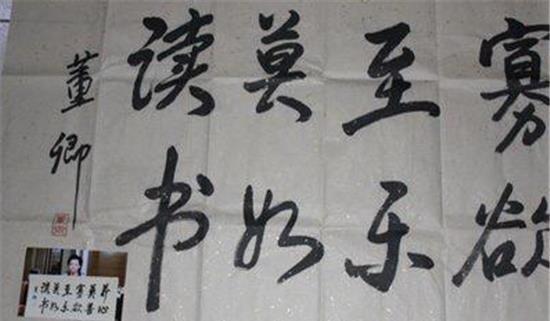 寡欲
至乐
莫如
读书
董卿
养心
莫善
寡欲
至乐
莫如
读书